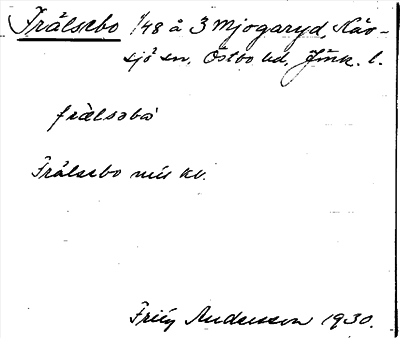 Frälsebo 1/48 å 3 Mjogaryd, Näv-
sjö sn, Östbo hd, Jönk. l.
frälsəbo
Frälsebo mis kv.
Andersson 1930.